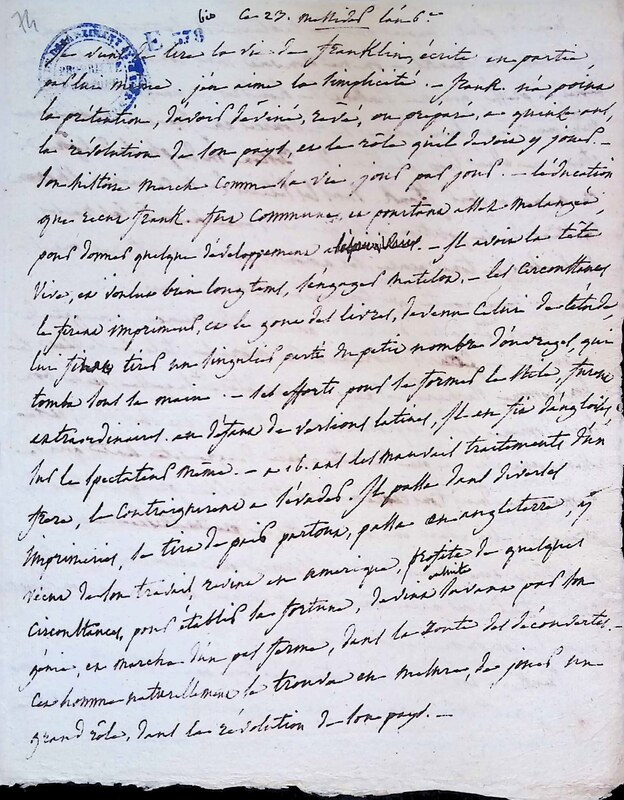 bio ce 23. messidor l'an 6e
E 378
je viens de lire la vie de franklin, écrite en partie
par lui même. j'en aime la simplicité. — frank. n'a point
la prétention, d'avoir deviné, révé, ou preparé, a quinze ans,
la révolution de son pays, et le rôle qu'il devoit y jouer. —
son histoire marche comme la vie, jour par jour. — l'éducation
que recut frank. fut commune, et pourtant assez melangée,
pour donner quelque développement a — Il avoit la tête
vive, et voulut bien longtems, s'engager matelot. — les circonstances
le firent imprimeur, et le gout des livres, devenu celui de l'étude,
lui fit tirer un singulier parti du petit nombre d'ouvrages, qui
tomba sous sa main. — ses efforts pour se former le stile, furent
extraordinaires. au défaut de versions latines, Il en fit d'angloises
sur le spectateur même. — a 16. ans les mauvais traitements d'un
frere, le contraignirent a s'évader. Il passa dans diverses
imprimeries, se tira de pair partout, passa en angleterre, y
vécut de son travail, revint en amerique, profita de quelques
circonstances, pour établir sa fortune, devint savant par son
génie, et marcha d'un pas ferme, dans la route des découvertes. —
cet homme naturellement se trouva en mesure, de jouer un
grand rôle, dans la révolution de son pays. —